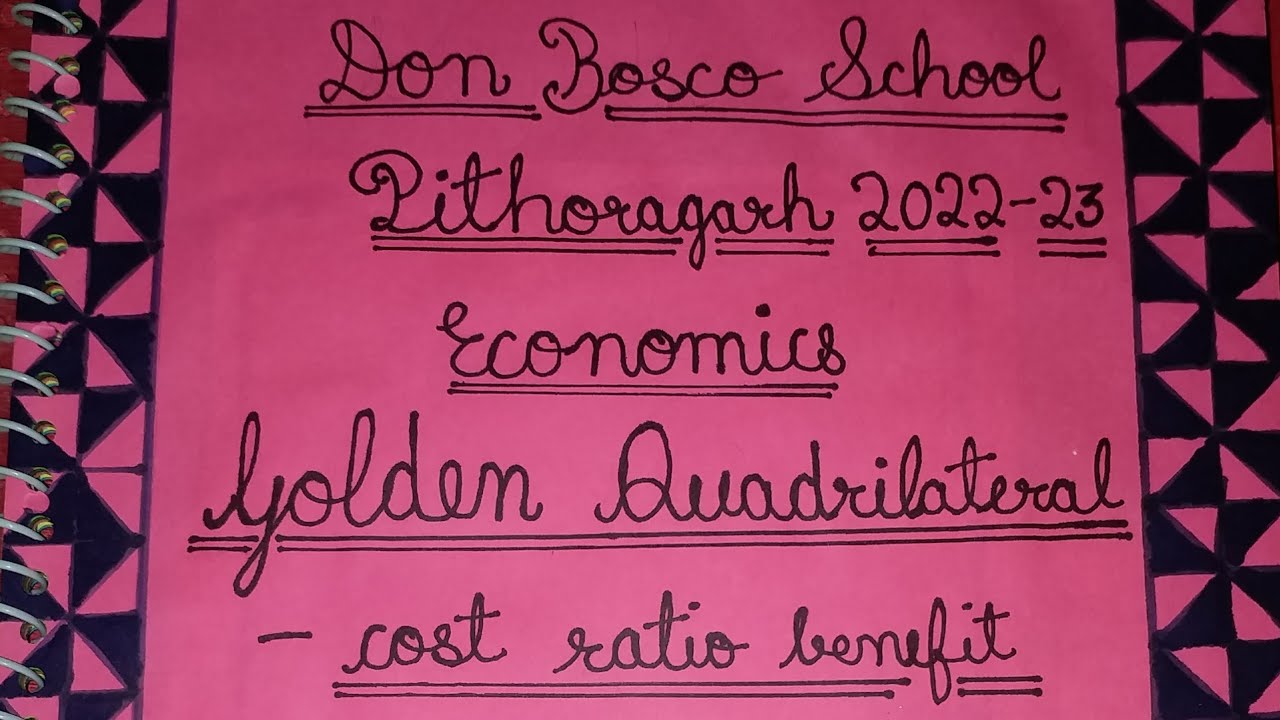 Don Bosco School
Pithoragarh 2022-23
Economics
Golden Quadrilateral
- cost ratio benefit